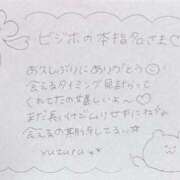 ビジホの本指名さま♡
お久しぶりにありがとう☺
会えるタイミング見計らって
くれてたの嬉しいよ〜♡
また長いけどムリせずにねな
会えるの楽しみしてる
yuzuru